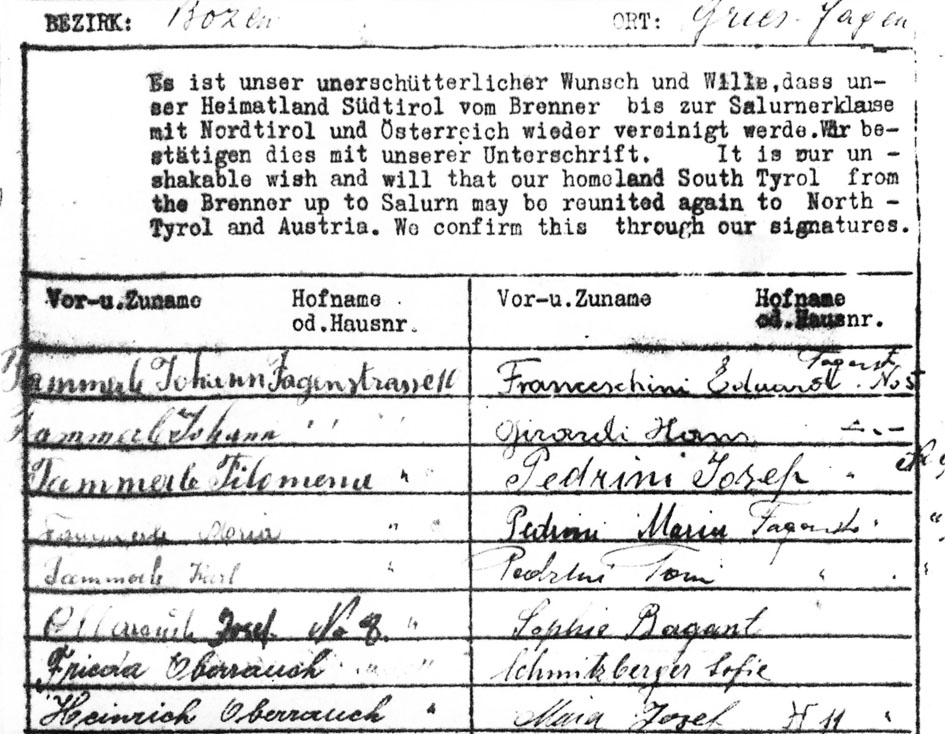 BEZIRK: Bozen ORT: Gries-Fagen
Es ist unser unerschütterlicher Wunsch und Wille,dass un-
ser Heimatland Südtirol vom Brenner bis zur Salurnerklause
mit Nordtirol und Österreich wieder vereinigt werde.Wir be-
stätigen dies mit unserer Unterschrift. It is our un -
shakable wish and will that our homeland South Tyrol from
the Brenner up to Salurn may be reunited again to North -
Tyrol and Austria. We confirm this through our signatures.
Vor-u.Zuname Hofname Vor-u.Zuname Hofname
od.Hausnr. od.Hausnr.
Tammerle Johann Fagenstrasse Franceschini Eduard Fagenstr. No 5
Tammerle Johann " " Girardi Hans -.-
Tammerle Filomena " Pedrini Josef "
Tammerle Maria " " Pedrini Maria Fagenstr. "
Tammerle Karl " Pedrini Toni " "
Oberrauch Josef No 8. " Sophie Bagant
Frieda Oberrauch " " Schmitzberger Sofie
Heinrich Oberrauch " Josef H 11 "